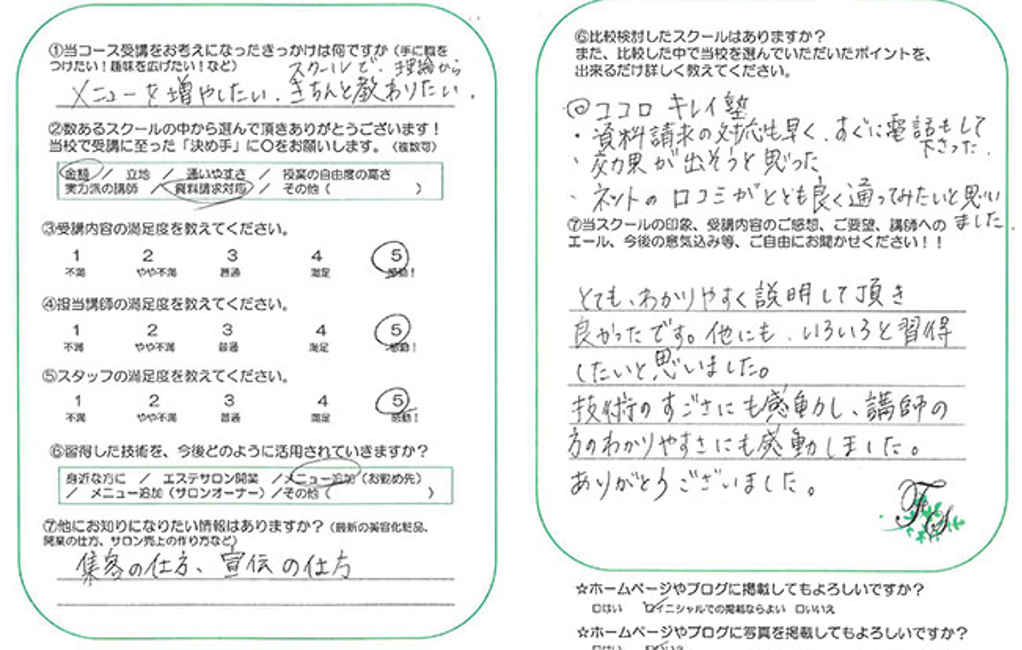 ①当コース受講をお考えになったきっかけは何ですか（手に職を
つけたい！趣味を広げたい！など）
スクールで、理論から
メニューを増やしたい．きちんと教わりたい．
②数あるスクールの中から選んで頂きありがとうございます！
当校で受講に至った「決め手」に〇をお願いします。（複数可）
金額 ／ 立地 ／ 通いやすさ ／ 授業の自由度の高さ
実力派の講師 ／ 資料請求対応 ／ その他（ ）
③受講内容の満足度を教えてください。
1 2 3 4 5
不満 やや不満 普通 満足 感動！
④担当講師の満足度を教えてください。
1 2 3 4 5
不満 やや不満 普通 満足 感動！
⑤スタッフの満足度を教えてください。
1 2 3 4 5
不満 やや不満 普通 満足 感動！
⑥習得した技術を、今後どのように活用されていきますか？
身近な方に ／ エステサロン開業 ／メニュー追加（お勤め先）
／ メニュー追加（サロンオーナー）／その他（ ）
⑦他にお知りになりたい情報はありますか？（最新の美容化粧品、
開業の仕方、サロン売上の作り方など）
集客の仕方、宣伝の仕方
⑥比較検討したスクールはありますか？
また、比較した中で当校を選んでいただいたポイントを、
出来るだけ詳しく教えてください。
◎ココロ キレイ塾
・資料請求の対応も早く、すぐに電話もして
下さった．
・効果が出そうと思った
・ネットの口コミがとても良く通ってみたいと思い
ました．
⑦当スクールの印象、受講内容のご感想、ご要望、講師への
エール、今後の意気込み等、ご自由にお聞かせください！！
とても、わかりやすく説明して頂き
良かったです。他にも、いろいろと習得
したいと思いました。
技術のすごさにも感動し、講師の
方のわかりやすさにも感動しました。
ありがとうございました。
☆ホームページやブログに掲載してもよろしいですか？
□はい ☑イニシャルでの掲載ならよい □いいえ
☆ホームページやブログに写真を掲載してもよろしいですか？